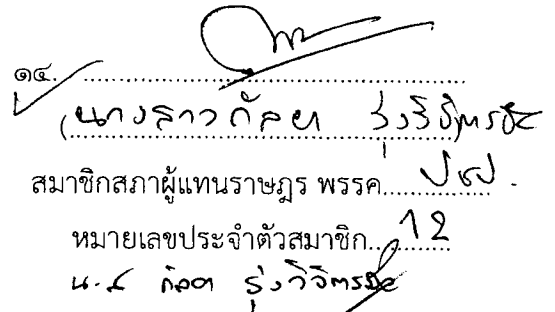 ๑๔. ........................................
(นางสาวกัลยา รุ่งวิจิตรชัย)
สมาชิกสภาผู้แทนราษฎร พรรค ปชป.
หมายเลขประจำตัวสมาชิก 12
น.ส. กัลยา รุ่งวิจิตรชัย